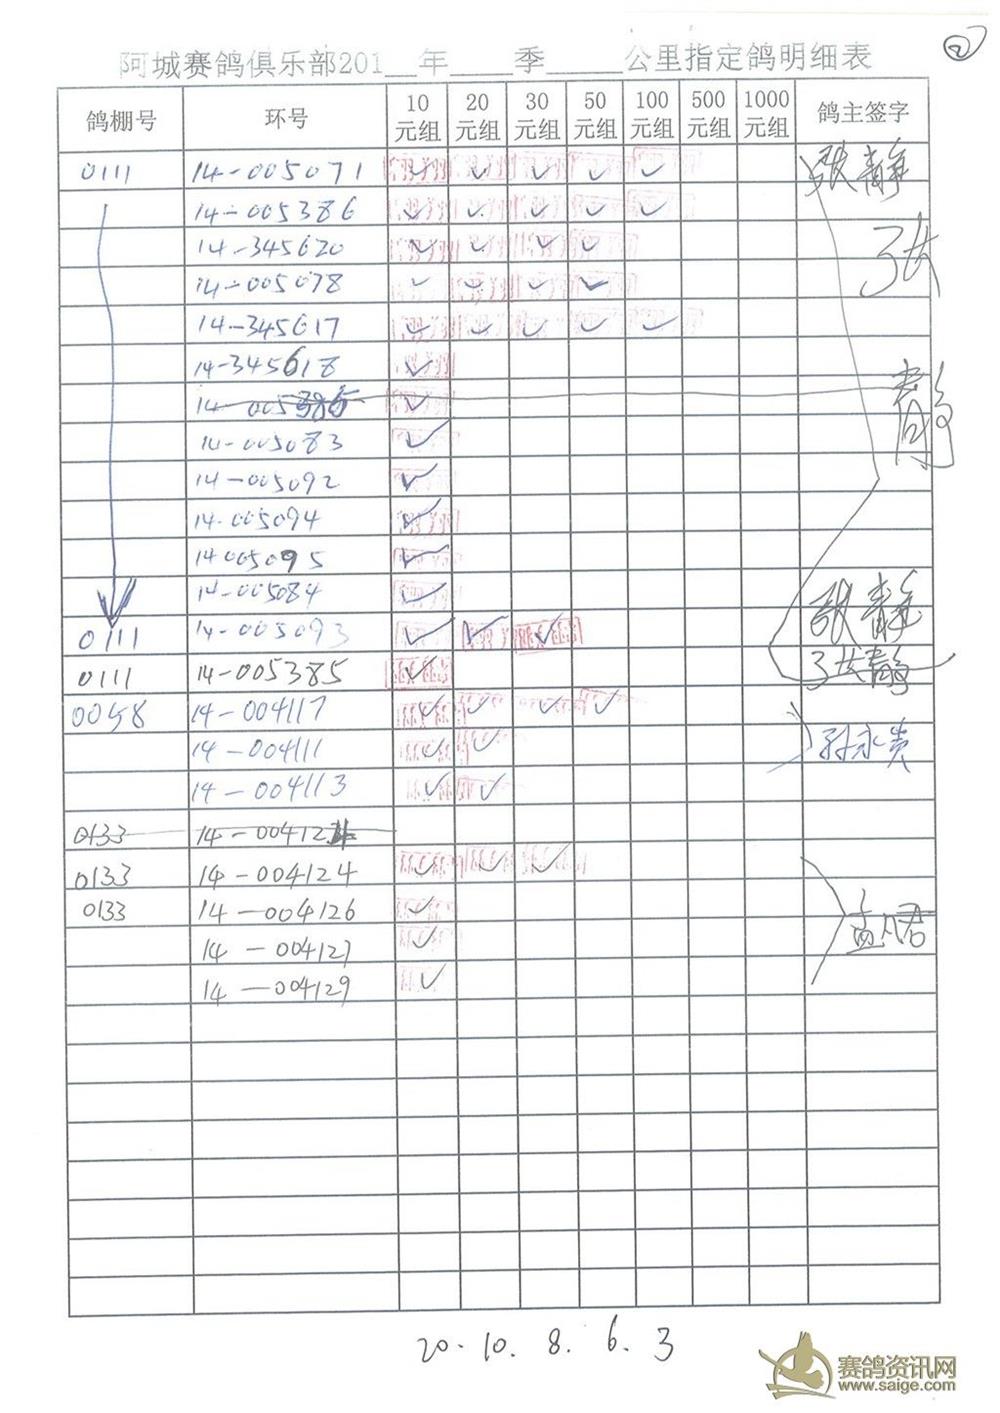 ②
阿城赛鸽俱乐部201__年____季_____公里指定鸽明细表
鸽棚号 环号 10元组 20元组 30元组 50元组 100元组 500元组 1000元组 鸽主签字
0111 14-005071 ✓ ✓ ✓ ✓ ✓ 张静
14-005386 ✓ ✓ ✓ ✓ ✓
14-345620 ✓ ✓ ✓ ✓ 张
14-005078 ✓ ✓ ✓ ✓
14-345617 ✓ ✓ ✓ ✓ ✓
14-345618 ✓
14-005386 ✓ 静
14-005083 ✓
14-005092 ✓
14-005094 ✓
14005095 ✓
14-005084 ✓
0111 14-005093 ✓ ✓ ✓ 张静
0111 14-005385 ✓ 张静
0058 14-004117 ✓ ✓ ✓ ✓
14-004111 ✓ ✓ 孙永贵
14-004113 ✓ ✓
0133 14-004124
0133 14-004124 ✓ ✓ ✓
0133 14-004126 ✓
14-004127 ✓
14-004129 ✓
20. 10. 8. 6. 3
赛鸽资讯网
www.saige.com